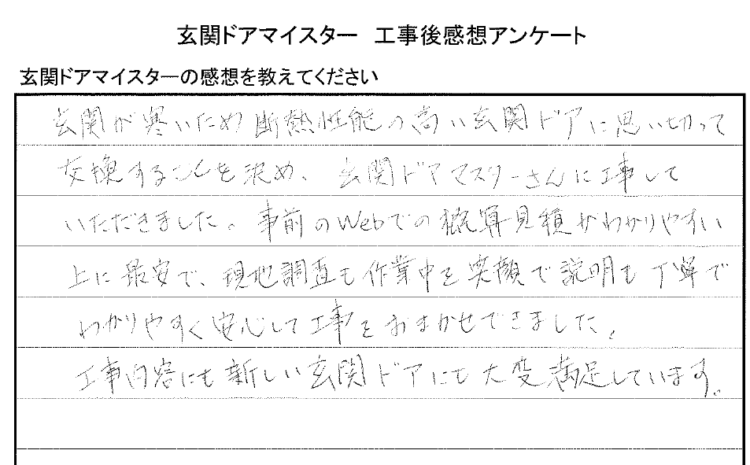 玄関ドアマイスター　工事後感想アンケート
玄関ドアマイスターの感想を教えてください
玄関が寒いため断熱性能の高い玄関ドアに思い切って
交換することを決め、玄関ドアマスターさんに工事して
いただきました。事前のWebでの概算見積がわかりやすい
上に最安で、現地調査も作業中も笑顔で説明も丁寧で
わかりやすく安心して工事をおまかせできました。
工事内容にも新しい玄関ドアにも大変満足しています。